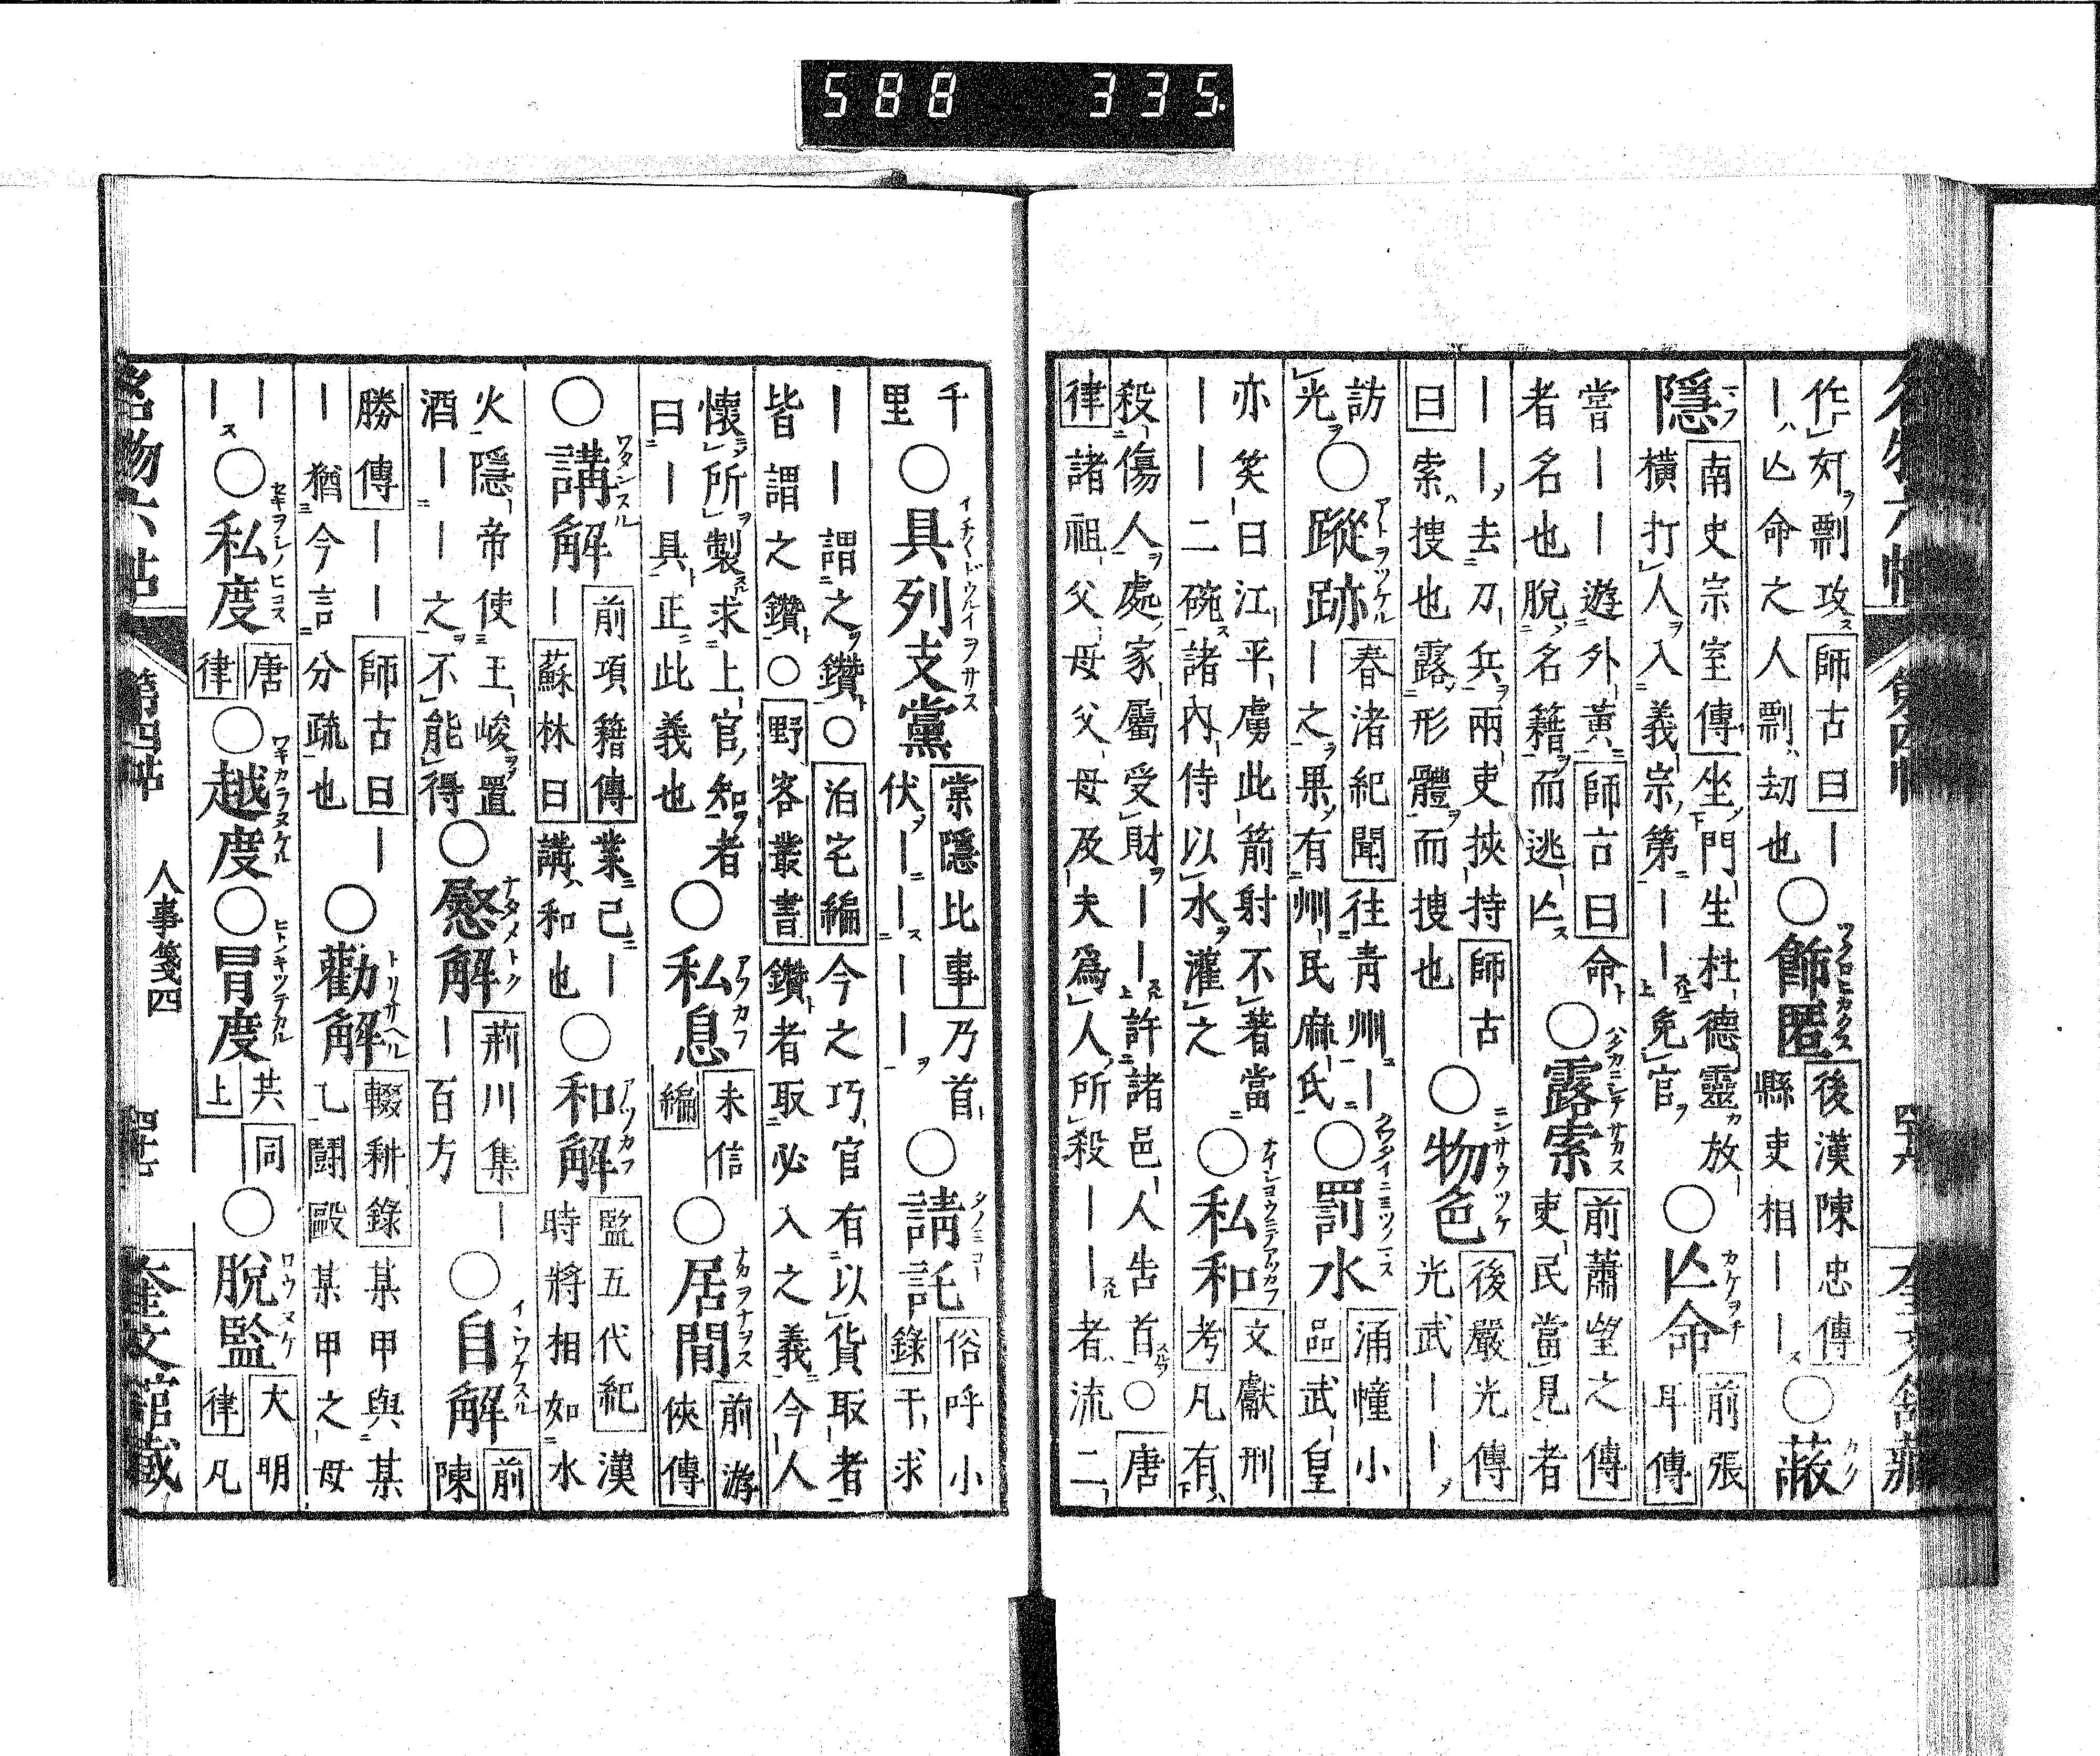 名物六帖 第四帖 四十六 奎文館藏
作姧剽攻師古曰｜
｜亡命之人剽劫也
○飾匿
後漢陳忠傳
縣吏相｜｜
○蔽
隱
南史宗室傳坐門生杜德靈放｜
橫打人入義宗第｜｜免官
○亡命
前張
耳傳
嘗｜｜遊外黃師古曰命
者名也脫名籍而逃亡
○露索
前蕭望之傳
吏民當見者
｜｜去刀兵兩吏挾持師古
曰索搜也露形體而搜也
○物色
後嚴光傳
光武｜｜
訪
光
○蹤跡
春渚紀聞往青州｜
｜之果有州民麻氏
○罰水
涌幢小
品武皇
亦笑曰江平虜此箭射不著當
｜｜二碗諸內侍以水灌之
○私和
文獻刑
考凡有
殺傷人處家屬受財｜｜許諸邑人告首○唐
律諸祖父母父母及夫爲人所殺｜｜者流二
千
里
○具列支黨
棠隱比事乃首
伏｜｜｜｜
○請託
俗呼小
錄干求
｜｜謂之鑽○泊宅編今之巧官有以貨取者
皆謂之鑽○野客叢書鑽者取必入之義今人
懷所製求上官知者
曰｜具正此義也
○私息
未信
編
○居間
前游
俠傳
○講解
前項籍傳業已｜
｜蘇林曰講和也
○和解
監五代紀漢
時將相如水
火隱帝使王峻置
酒｜｜之不能得
○慰解
荊川集｜
｜百方
○自解
前
陳
勝傳｜｜師古曰｜
｜猶今言分疏也
○勸解
輟耕錄某甲與某
乙鬪毆某甲之母
｜
｜
○私度
唐
律
○越度
○冒度
共同
上
○脫監
大明
律凡
名物六帖 第四帖 人事箋四 四十七 奎文館藏
588 335